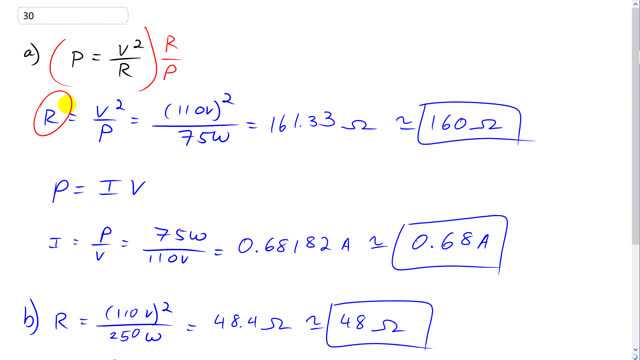 30
a) (P = V²/R) R/P
R = V²/P = (110V)²/75W = 161.33 Ω ≃ 160 Ω
P = I V
I = P/V = 75W/110V = 0.68182 A ≃ 0.68 A
b) R = (110V)²/250W = 48.4 Ω ≃ 48 Ω